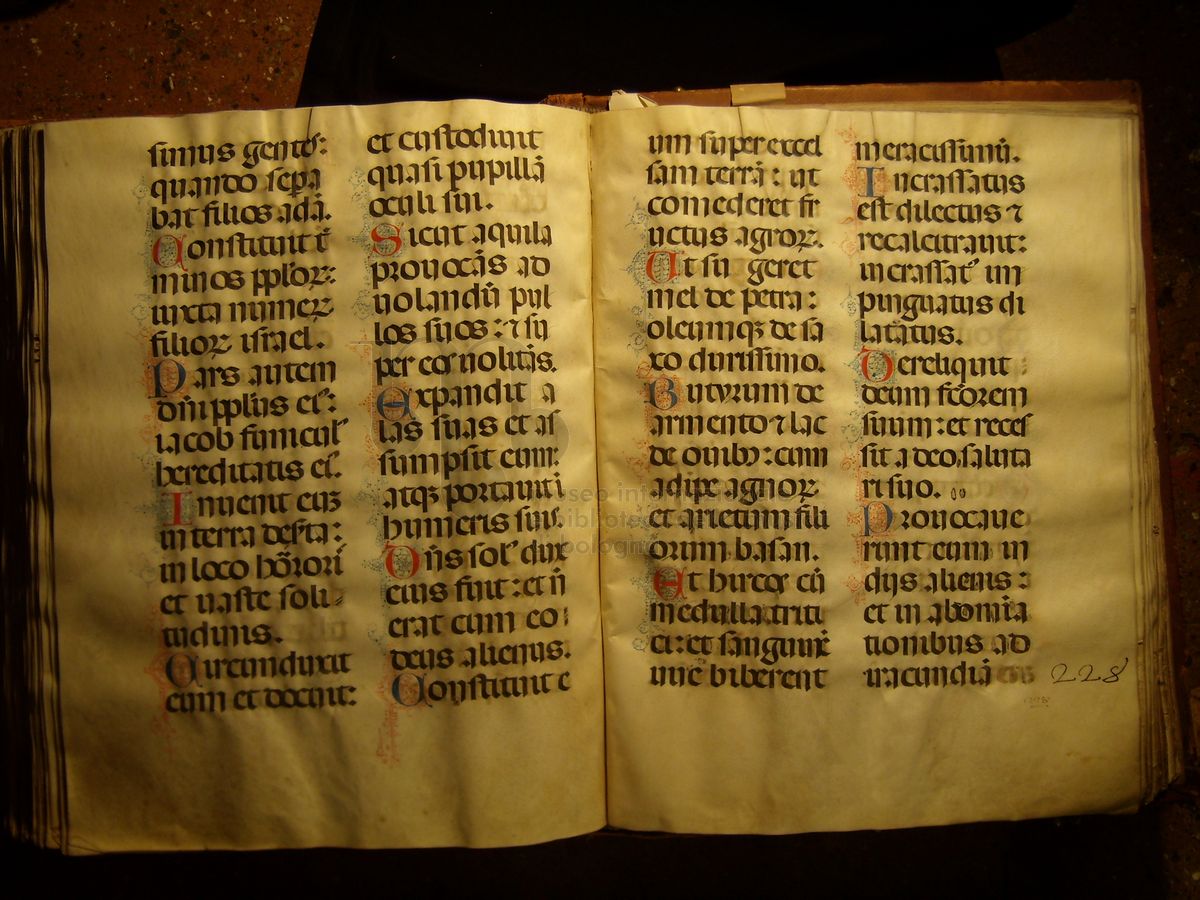 simus gentes:
quando sepa
bat filios adā.
Constituit t̄
minos pplōꝝ:
iuxta numeꝝ
filioꝝ israel.
Pars autem
dn̄i pplūs eiꝰ:
iacob funiculꝰ
hereditatis eiꝰ.
Inuenit euʒ
in terra deſta:
in loco hōrori
et uaste soli
tudinis.
Circunduxit
eum et docuit:
et custodiuit
quasi pupillā
oculi sui.
Sicut aquila
prouocās ad
uolandū pul
los suos: ⁊ su
per eos uolitās.
Expandit a
las suas et as
sumpsit eum:
atqʒ portauit ī
humeris suis.
Dn̄s solꝰ dux
eius fuit: et n̄
erat cum eo
deus alienus.
Constituit e
um super excel
sam terrā: ut
comederet fr
uctus agroꝝ.
Ut su geret
mel de petra:
oleumqʒ de sa
xo durissimo.
Butyrum de
armento ⁊ lac
de ouibꝫ: cum
adipe agnoꝝ
et arietum fili
orum basan.
Et hircos cū
medulla triti
ci: et sanguinē
uue biberent
meracissimū.
Incrassatus
est dilectus ⁊
recalcitrauit:
incrassatꝰ im
pinguatus di
latatus.
Dereliquit
deum fctorem
suum: et reces
sit a deo saluta
ri suo.
Prouocaue
runt eum in
dijs alienis:
et in abomīa
tionibus ad
iracundiā
228